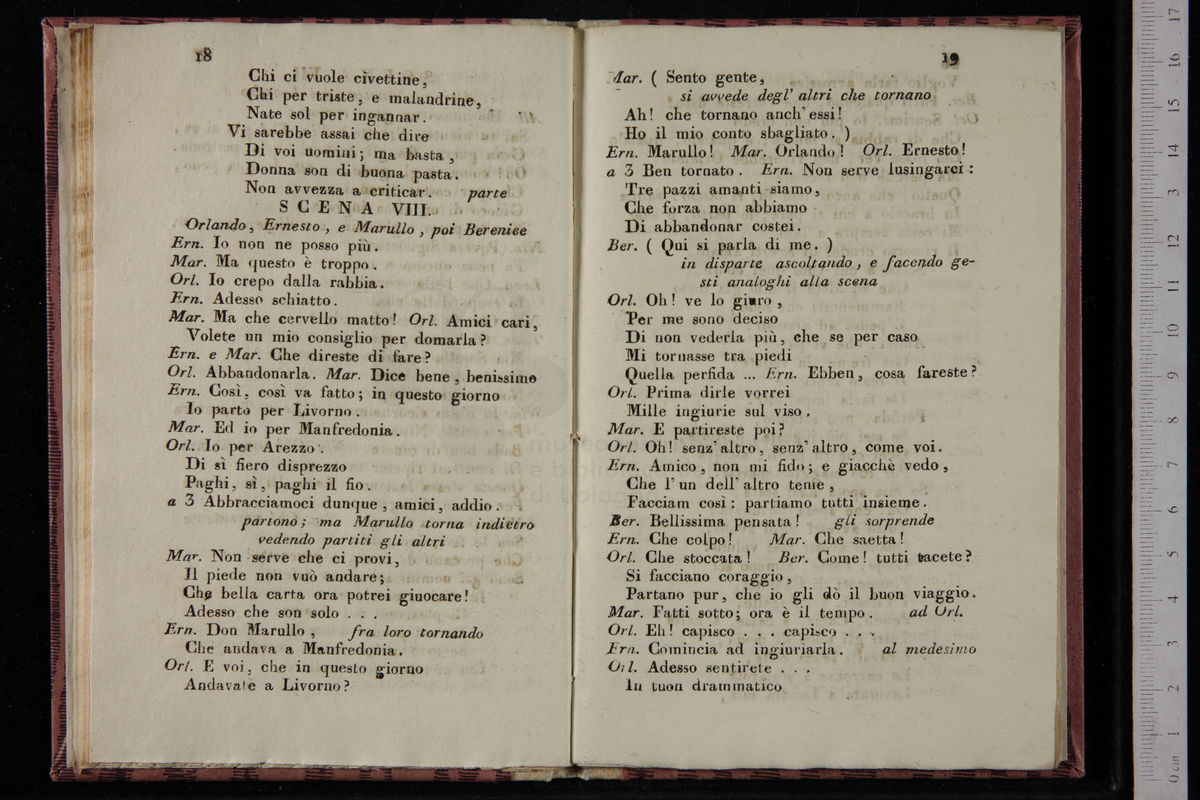 18
Chi ci vuole civettine,
Chi per triste, e malandrine,
Nate sol per ingannar.
Vi sarebbe assai che dire
Di voi uomini; ma basta,
Donna son di buona pasta.
Non avvezza a criticar. parte
SCENA VIII.
Orlando, Ernesto, e Marullo, poi Berenice
Ern. Io non ne posso più.
Mar. Ma questo è troppo.
Orl. Io crepo dalla rabbia.
Ern. Adesso schiatto.
Mar. Ma che cervello matto! Orl. Amici cari,
Volete un mio consiglio per domarla?
Ern. e Mar. Che direste di fare?
Orl. Abbandonarla. Mar. Dice bene, benissimo
Ern. Così, così va fatto; in questo giorno
Io parto per Livorno.
Mar. Ed io per Manfredonia.
Orl. Io per Arezzo.
Di sì fiero disprezzo
Paghi, sì, paghi il fio.
a 3 Abbracciamoci dunque, amici, addio.
partono; ma Marullo torna indietro
vedendo partiti gli altri
Mar. Non serve che ci provi,
Il piede non vuò andare;
Che bella carta ora potrei giuocare!
Adesso che son solo . . .
Ern. Don Marullo, fra loro tornando
Che andava a Manfredonia.
Orl. E voi, che in questo giorno
Andavate a Livorno?
19
Mar. ( Sento gente,
si avvede degl' altri che tornano
Ah! che tornano anch'essi!
Ho il mio conto sbagliato. )
Ern. Marullo! Mar. Orlando! Orl. Ernesto!
a 3 Ben tornato. Ern. Non serve lusingarci:
Tre pazzi amanti siamo,
Che forza non abbiamo
Di abbandonar costei.
Ber. ( Qui si parla di me. )
in disparte ascoltando, e facendo ge-
sti analoghi alla scena
Orl. Oh! ve lo giuro,
Per me sono deciso
Di non vederla più, che se per caso
Mi tornasse tra piedi
Quella perfida ... Ern. Ebben, cosa fareste?
Orl. Prima dirle vorrei
Mille ingiurie sul viso.
Mar. E partireste poi?
Orl. Oh! senz'altro, senz'altro, come voi.
Ern. Amico, non mi fido; e giacchè vedo,
Che l'un dell'altro teme,
Facciam così: partiamo tutti insieme.
Ber. Bellissima pensata! gli sorprende
Ern. Che colpo! Mar. Che saetta!
Orl. Che stoccata! Ber. Come! tutti tacete?
Si facciano coraggio,
Partano pur, che io gli dò il buon viaggio.
Mar. Fatti sotto; ora è il tempo. ad Orl.
Orl. Eh! capisco . . . capisco . . .
Ern. Comincia ad ingiuriarla. al medesimo
Orl. Adesso sentirete . . .
In tuon drammatico